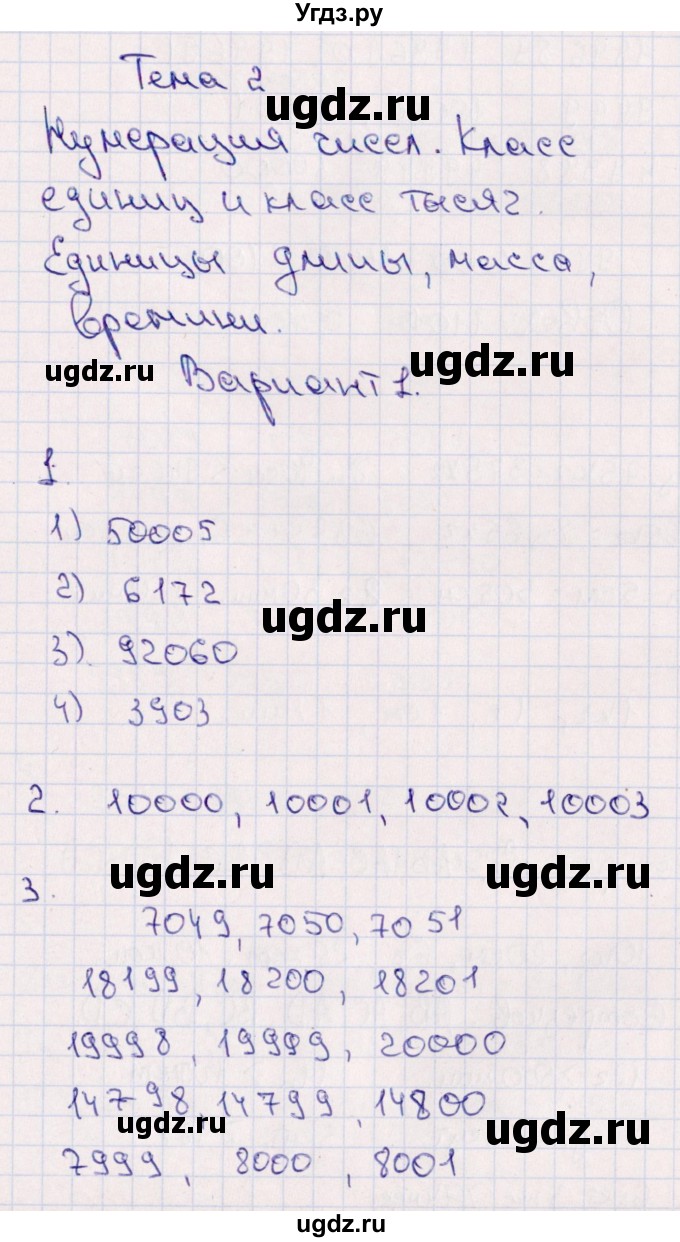 Угдз.ру
Тема 2
ugdz.ru
Нумерация чисел. Класс
единиц и класс тысяч.
Единицы длины, масса,
времени.
ugdz.ru
ugdz.ru
Вариант 1.
1.
1) 50005
2) 6172
ugdz.ru
3). 92060
4) 3903
2. 10000, 10001, 10002, 10003
ugdz.ru
ugdz.ru
3.
7049, 7050, 7051
18199, 18200, 18201
19998, 19999, 20000
14798, 14799, 14800
ugdz.ru
ugdz.ru
7999, 8000, 8001
ugdz.ru